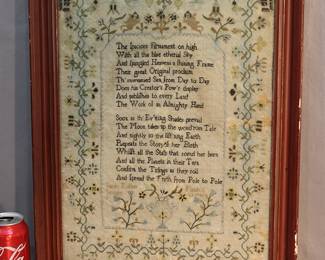 The Spacious Firmament on high
With all the blue etherial Sky
And spangled Heavens a shining Frame
Their great Original proclaim
Th' unwearied Sun from Day to Day
Does his Creator's Pow'r display
And publishes to every Land
The Work of an Almighty Hand
Soon as th' Ev'ning Shades prevail
The Moon takes up the wond'rous Tale
And nightly to the list'ning Earth
Repeats the Story of her Birth
Whilst all the Stars that round her burn
And all the Planets in their Turn
Confirm the Tidings as they roll
And spread the Truth from Pole to Pole